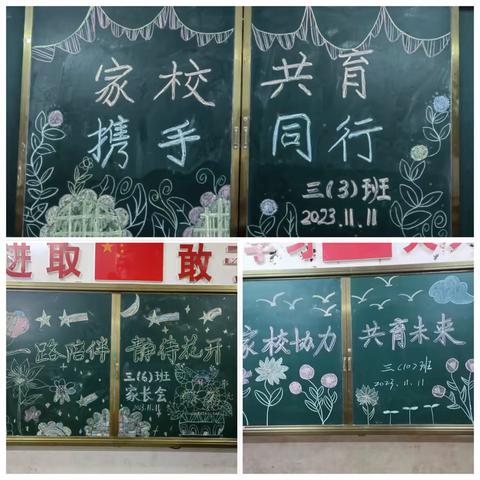 家校 共育
携手 同行
三(3)班
2023.11.11
进取 敢
一路陪伴 静待花开
三(6)班
家长会
2023.11.11
学习
家校协力 共育未来
三(10)班
2023.11.11